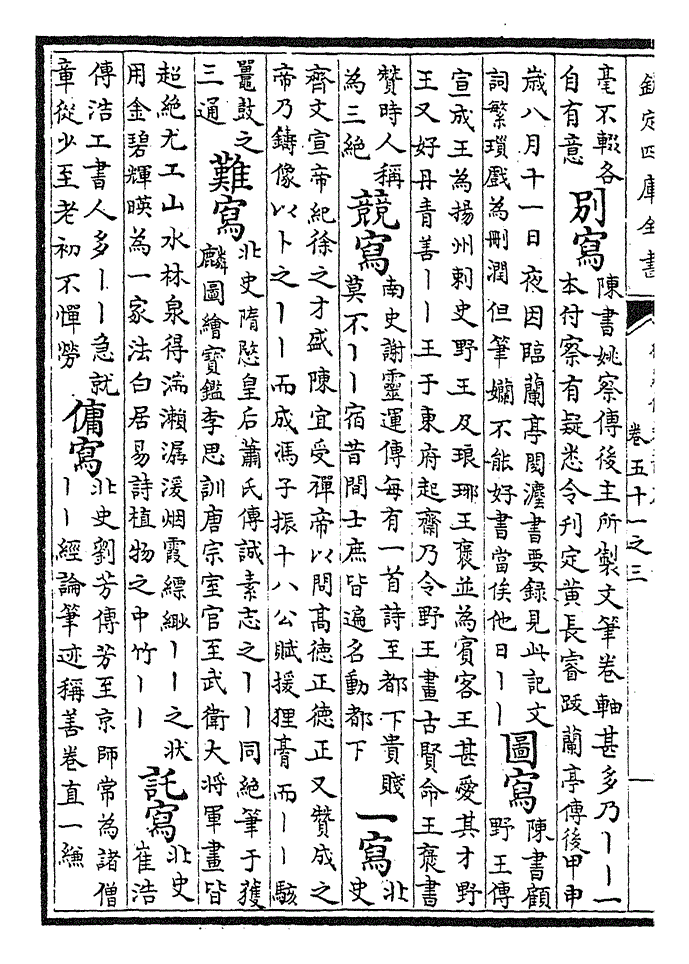 欽定四庫全書
卷五十一之三
一
毫不輟各
自有意
別寫
陳書姚察傳後主所製文筆卷軸甚多乃丨丨一
本付察有疑悉令刊定黄長睿跋蘭亭傳後甲申
歲八月十一日夜因臨蘭亭閱灋書要録見此記文
詞繁瑣戲為刪潤但筆嬾不能好書當俟他日丨丨
圖寫
陳書顧
野王傳
宣成王為揚州刺史野王及琅琊王褒並為賓客王甚愛其才野
王又好丹青善丨丨王于東府起齋乃令野王畫古賢命王褒書
贊時人稱
為三絶
競寫
南史謝靈運傳每有一首詩至都下貴賤
莫不丨丨宿昔間士庶皆遍名動都下
一寫
北
史
齊文宣帝紀徐之才盛陳宜受禪帝以問髙德正德正又贊成之
帝乃鑄像以卜之丨丨而成馮子振十八公賦援狸膏而丨丨駭
鼉鼓之
三通
難寫
北史隋愍皇后蕭氏傳誠素志之丨丨同絶筆于獲
麟圖繪寳鑑李思訓唐宗室官至武衛大將軍畫皆
超絶尤工山水林泉得湍瀨潺湲烟霞縹緲丨丨之狀
用金碧輝暎為一家法白居易詩植物之中竹丨丨
託寫
北史
崔浩
傳浩工書人多丨丨急就
章從少至老初不憚勞
傭寫
北史劉芳傳芳至京師常為諸僧
丨丨經論筆迹稱善卷直一縑